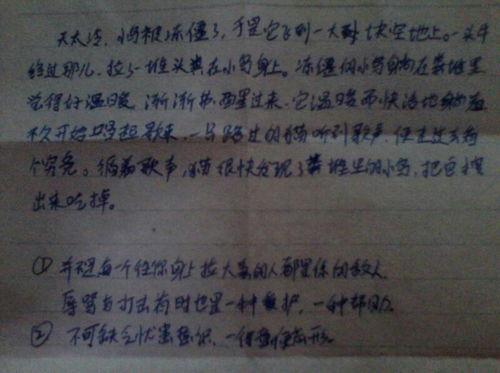 天太冷，小鸟被冻僵了，于是它飞到一大块空地上。一头牛
经过那儿，拉了一堆头粪在小鸟身上。冻僵的小鸟躺在粪堆里
觉得好温暖，渐渐苏醒过来，它温暖而快活地躺着
不久开始唱起歌来，一只路过的猫听到歌声，便走过去看
个究竟。循着歌声，猫很快发现了粪堆里的小鸟，把它拽
出来吃掉。
① 并不是每一个往你身上拉大粪的人都是你的敌人。
辱骂与打击有时也是一种爱护，一种帮助。
② 不可缺乏忧患意识，一得意便忘形。